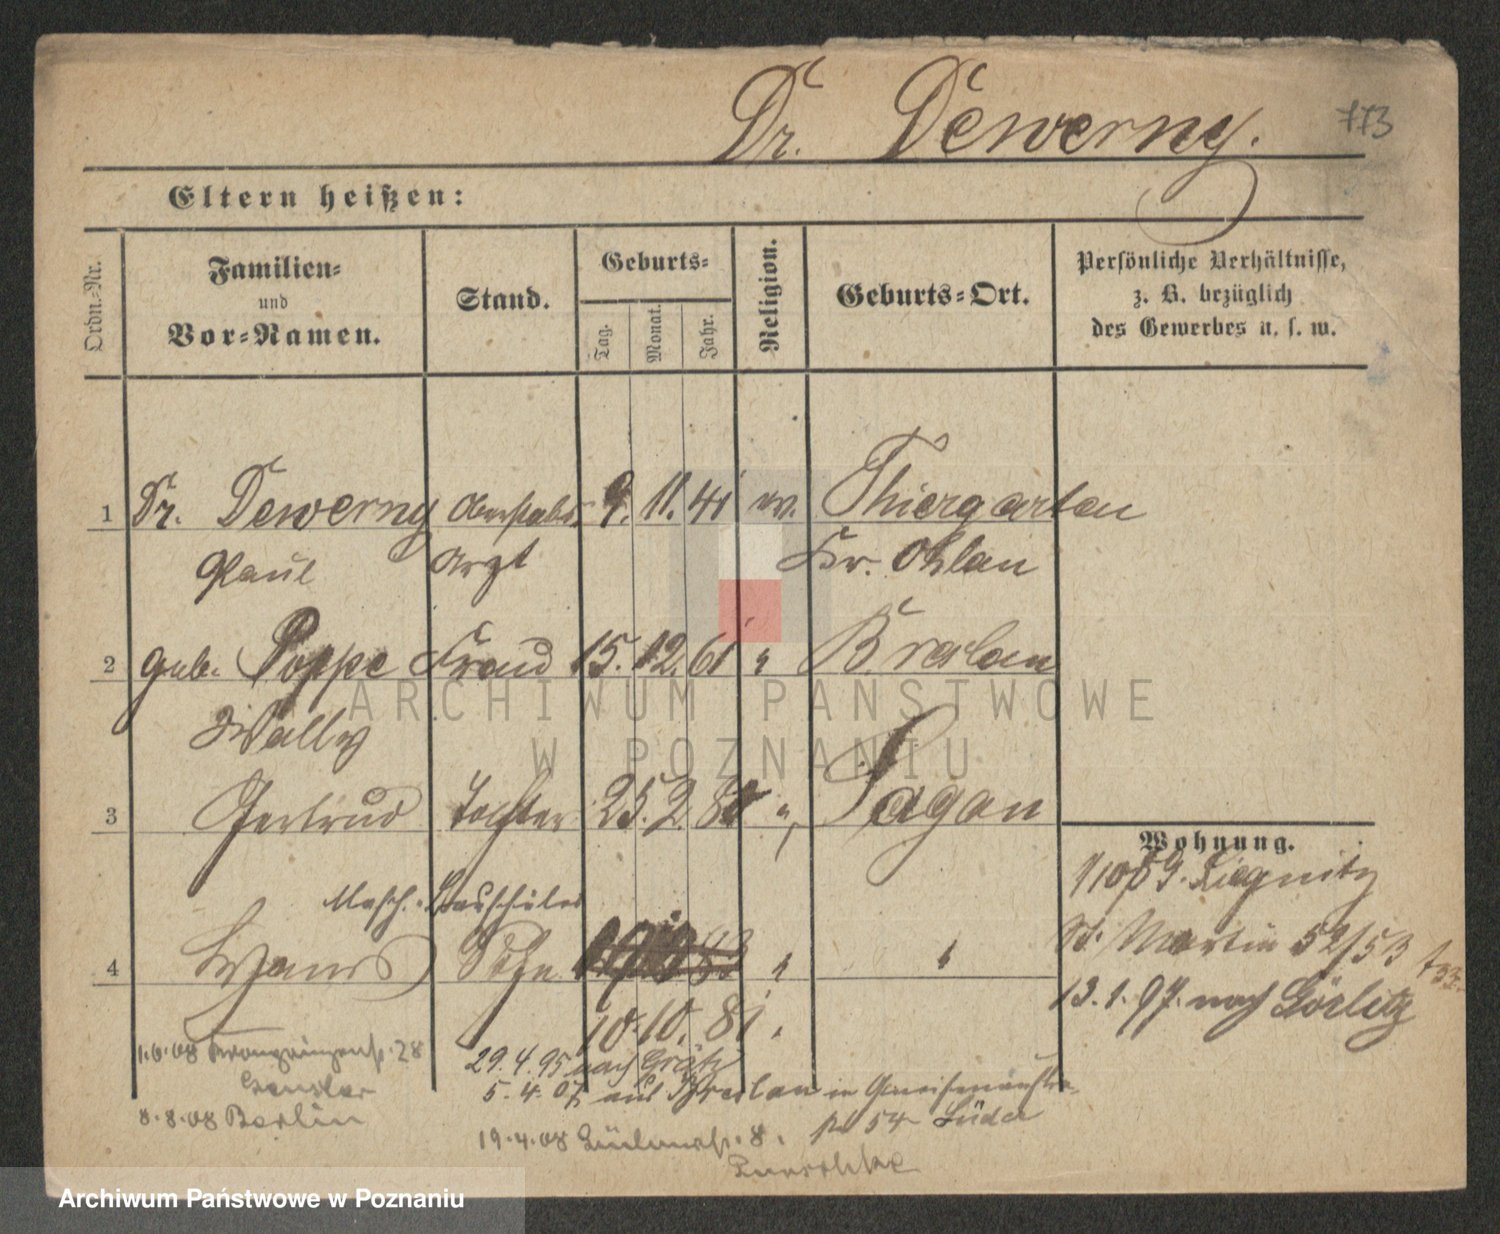 Dr. Dewerny.
773
Eltern heißen:
Ordn.-Nr.
Familien-
und
Vor-Namen.
Stand.
Geburts-
Tag.
Monat.
Jahr.
Religion.
Geburts-Ort.
Persönliche Verhältnisse,
z. B. bezüglich
des Gewerbes u. s. w.
1 Dr. Dewerny Oberstabs 9. 11. 41 ev. Thiergarten
Paul Arzt Kr. Ohlau
2 geb. Poppe Frau 15. 12. 61 " Breslau
Wally
3 Gertrud Tochter 25. 2. 80 " Sagan
Wohnung.
Liegnitz
Masch. Bauschüler
4 Hans Sohn " "
St. Martin 52/53
13.1.97. nach Görlitz
10. 10. 81.
1.6.08 28
29.4.95 nach Grätz
5.4.07 aus Breslau in
54 Lüder
8.8.08 Berlin
19.4.08 8.
ARCHIWUM PAŃSTWOWE
W POZNANIU
Archiwum Państwowe w Poznaniu